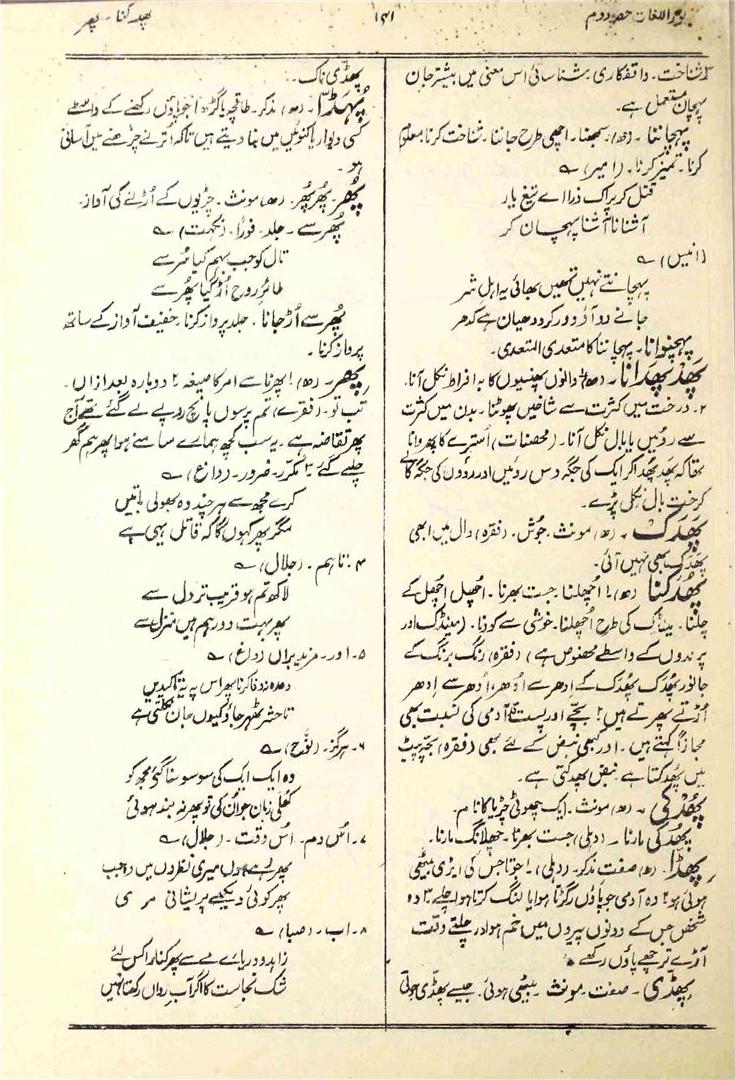 نور اللغات حصہ دوم
۱۴۱
پھدکنا - پھر
شناخت۔ واقفکاری۔ شناسائی اس معنی میں بیشتر جان
پہچان مستعمل ہے۔
پہچاننا۔ (ھ) سمجھنا۔ اچھی طرح جاننا۔ شناخت کرنا۔ معلوم
کرنا۔ تمیز کرنا۔ (امیر) ؎
قتل کر پر اک ذرا اے تیغِ یار
آشنا نا آشنا پہچان کر
(انیس) ؎
پہچانتے نہیں تمھیں بھائی یہ اہل شر
جانے دو آؤ دور کرو دھیان ہے کدھر
پہچنوانا۔ پہچاننا کا متعدی المتعدی۔
پھَد پھَدانا۔ (ھ) دانوں پھنسیوں کا بہ افراط نکل آنا۔
۲۔ درخت میں کثرت سے شاخیں پھوٹنا۔ بدن میں کثرت
سے روئیں یا بال نکل آنا۔ (محصنات) اُسترے کا پھروانا
تھا کہ پھد پھدا کر ایک کی جگہ دس روئیں اور رووں کی جگہ کالے
کرخت بال نکل پڑے۔
پھَدَک۔ (ھ) مونث۔ جوش۔ (فقرہ) دال میں ابھی
پھَدَک بھی نہیں آئی۔
پھُدَکنا (ھ) ۱ اُچھلنا۔ جست بھرنا۔ اُچھل اُچھل کے
چلنا۔ مینڈک کی طرح اُچھلنا۔ خوشی سے کودنا۔ (مینڈک اور
پرندوں کے واسطے مخصوص ہے) (فقرہ) رنگ برنگ کے
جانور پھُدک پھُدک کے ادھر سے اُدھر، اُدھر سے ادھر
اُڑتے پھرتے ہیں ۲ بچّے اور پست قد آدمی کی نسبت بھی
مجازاً کہتے ہیں۔ اور کبھی نبض کے لئے بھی (فقرہ) بچّہ پیٹ
میں پھُدکتا ہے نبض پھدکتی ہے۔
پھُدکی۔ (ھ) مونث۔ ایک چھوٹی چڑیا کا نام۔
پھُدکی مارنا۔ (دہلی) جست بھرنا۔ چھلانگ مارنا۔
پھِڈّا۔ (ھ) صفت مذکر۔ (دہلی) ۱ جوتا جس کی ایڑی بیٹھی
ہوئی ہو ۲ وہ آدمی جو پاؤں رگڑتا ہوا یا لنگ کرتا ہوا چلے ۳ وہ
شخص جس کے دونوں پیروں میں خم ہو اور چلتے وقت
آڑے ترچھے پاؤں رکھے
پھِڈّی۔ صفت۔ مونث۔ بیٹھی ہوئی۔ جیسے پھڈّی جوتی
پھڈّی ناک۔
پُہڑا۔ (ھ) مذکر۔ طاقچہ یا گڑھا جو پاؤں رکھنے کے واسطے
کسی دیوار یا کنوئیں میں بنا دیتے ہیں تاکہ اُترنے چڑھنے میں آسانی
ہو۔
پھُر۔ پھُر پھُر۔ (ھ) مونث۔ چڑیوں کے اُڑنے کی آواز۔
پھُر سے۔ جلد۔ فوراً۔ (نکہت) ؎
تال کو جب بہم کیا سُر سے
طائرِ روح اُڑ گیا پھُر سے
پھُر سے اُڑ جانا۔ جلد پرواز کرنا۔ خفیف آواز کے ساتھ
پرواز کرنا۔
پھِر۔ (ھ) ۱ پھرنا سے امر کا صیغہ ۲ دوبارہ بعد ازاں۔
تب تو۔ (فقرے) تم پرسوں پانچ روپے لے گئے تھے آج
پھر تقاضہ ہے۔ یہ سب کچھ ہمارے سامنے ہوا پھر ہم گھر
چلے گئے ۳ مکرّر۔ ضرور۔ (داغ) ؎
کرے مجھ سے ہر چند وہ بھولی باتیں
مگر پھر کہوں گا کہ قاتل یہی ہے
۴۔ تاہم۔ (جلال) ؎
لاکھ تم ہو قریب تر دل سے
پھر بہت دور ہم ہیں منزل سے
۵۔ اور۔ مزید براں (داغ) ؎
وعدہ وفا کرنا پھر اس پہ یہ تاکیدیں
تا حشر ٹھہر جاؤ کیوں جان نکلتی ہے
۶۔ ہرگز۔ (نوح) ؎
وہ ایک ایک کی سو سو سنا گئی مجھ کو
کھُلی زبان جو اُن کی تو پھر نہ بند ہوئی
۷۔ اُس دم۔ اُس وقت۔ (جلال) ؎
پھر رہے ہوں میری نظروں میں وہ جب
پھر کوئی دیکھے پریشانی مری
۸۔ اب۔ (صبا) ؎
زاہدو دریائے مے سے پھر کنارا کس لئے
شک نجاست کا اگر آبِ رواں رکھتا نہیں